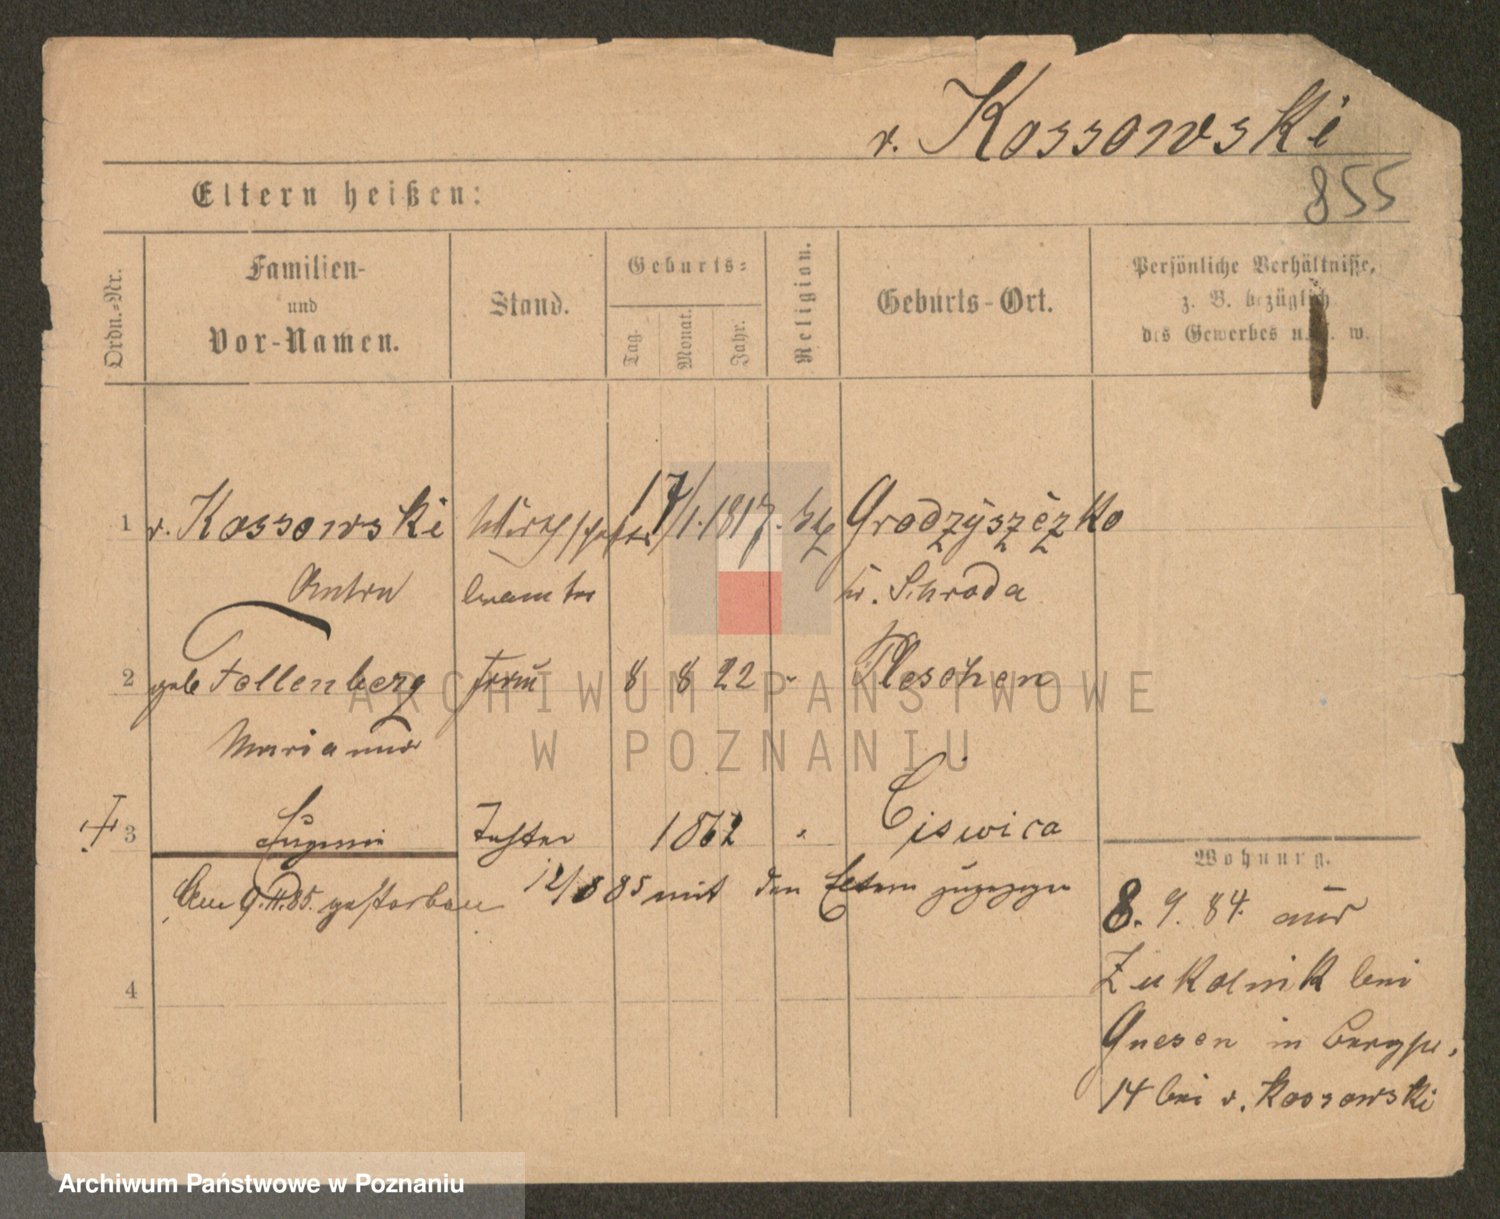 v. Kossowski
855
Eltern heißen:
Ordn.-Nr.
Familien-
und
Vor-Namen.
Stand.
Geburts-
Tag.
Monat.
Jahr.
Religion.
Geburts-Ort.
Persönliche Verhältnisse,
z. B. bezüglich
des Gewerbes u. s. w.
1 v. Kossowski Wirthschafts 17/1. 1817. Grodzyszczko
beamter Kr. Schroda
2 geb Fellenberg Frau 8 8 22 " Pleschen
Marianna
3 Eugenie Tochter 1862 " Ciswica
Am 9.11.85. gestorben 12/8 85 mit den Eltern zugezogen
4
Wohnung.
8. 9. 84. aus
bei
Gnesen in Bergstr.
14 bei v. Kossowski
ARCHIWUM PAŃSTWOWE
W POZNANIU
Archiwum Państwowe w Poznaniu